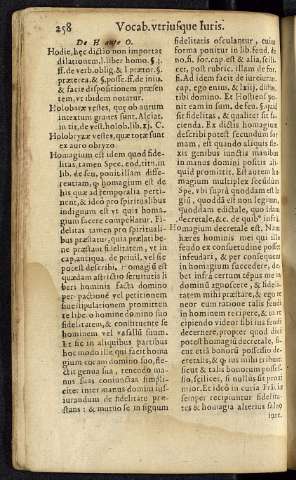 258 Vocab. vtriusque Iuris.
De H ante O.
Hodie, hęc dictio non importat
dilationem, l. liber homo. §. j.
ff. de verb. oblig. & l. prætor. §.
præterea, & §. posse. ff. de iniu.
& facit dispositionem præsen
tem, vt ibidem notatur.
Holobaræ vestes, quę ob aurum
intextum grauẽs sunt. Alciat.
in tit. de vest. holob. lib. xj. C.
Holobryzæ vestes, quæ totæ sunt
ex auro obryzo.
Homagium est idem quod fideli
tas, tamen Spec. eod. titt. in
lib. de feu. ponit illam diffe
rentiam, homagium est de
his quæ ad temporalia perti-
nent, & ideò pro spiritualibus
indignum est vt quis homa-
gium facere compellatur. Fi-
delitas tamen pro spirituali-
bus præstatur, quia prælati be-
ne præstant fidelitatem, vt in
cap. antiqua. de priuil. vel sic
potest describi, homagiũ est
quædam adstrictio seruitutis li
beri hominis facta domino
per pactionē vel petitionem
suę stipulationem promitten
te libero homine domino suo
fidelitatem, & constituente se
hominem vel vasallũ suum.
Et fit in aliquibus partibus
hoc modo ille qui facit homa
gium coram domino suo, fle-
ctit genua sua, tenendo ma-
nus suas coniunctas simplici-
ter inter manus domini ius-
iurandum de fidelitate præ-
stans: & mutuò se in signum
fidelitatis osculantur, cuius
forma ponitur in lib. feud. &
no. fi. for. cap. est & alia, scili-
cet, post rubric. illam de for.
fi. Ad idem facit de iureiuran.
cap. ego enim,
debi domino. Et Hostiensis po-
nit eam in sum. de feu. §. quid
sit fidelitas, & qualiter sit fa-
cienda. Et ex dictis homagiũ
describi potest secundum for-
mam, est quando aliquis fle-
xis genibus iunctis manibus
in manus domini positis ali-
quid promittit. Est autem ho-
magium multiplex secundũm
Spec. vbi suprà quoddam est li
giũ, quoddã est non legium,
quoddam edictale, quoddam
decretale, & de quibus infrà.
Homagium decretale est. Nam
hæres hominis mei qui illi
feudo ex consuetudine posset
infeudari, & per consequens
in homagium succedere, de-
bet infrà certum tẽpus me in
dominũ agnoscere, & fideli-
tatem mihi præstare, & ego te
neor eum ratione talis feudi
in hominem recipere, & in re
cipiendo videor sibi tale feudũ
decernere, propter quod dici
potest homagiũ decretale, si-
cut etiã bonorũ possessio de-
cretalis, & q ius mihi tribuit
sicut & talis bonorum posses-
sio, scilicet, si nullus sit prori
mior. Et ideò in curia Frã.
semper recipiuntur fidelita-
tes & homagia alterius saluo
iure.